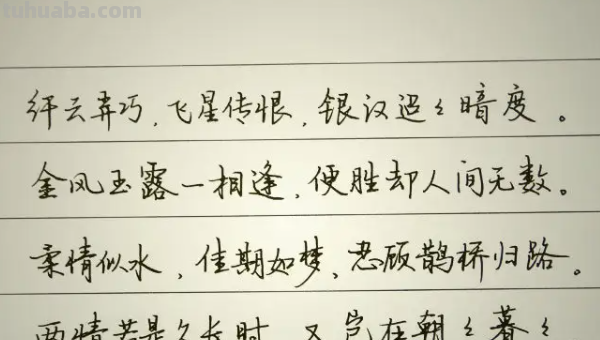 tuhuaba.com
纤云弄巧,飞星传恨,银汉迢々暗度。
金风玉露一相逢,便胜却人间无数。
柔情似水,佳期如梦、忍顾鹊桥归路。
两情若是久长时,又岂在朝々暮々